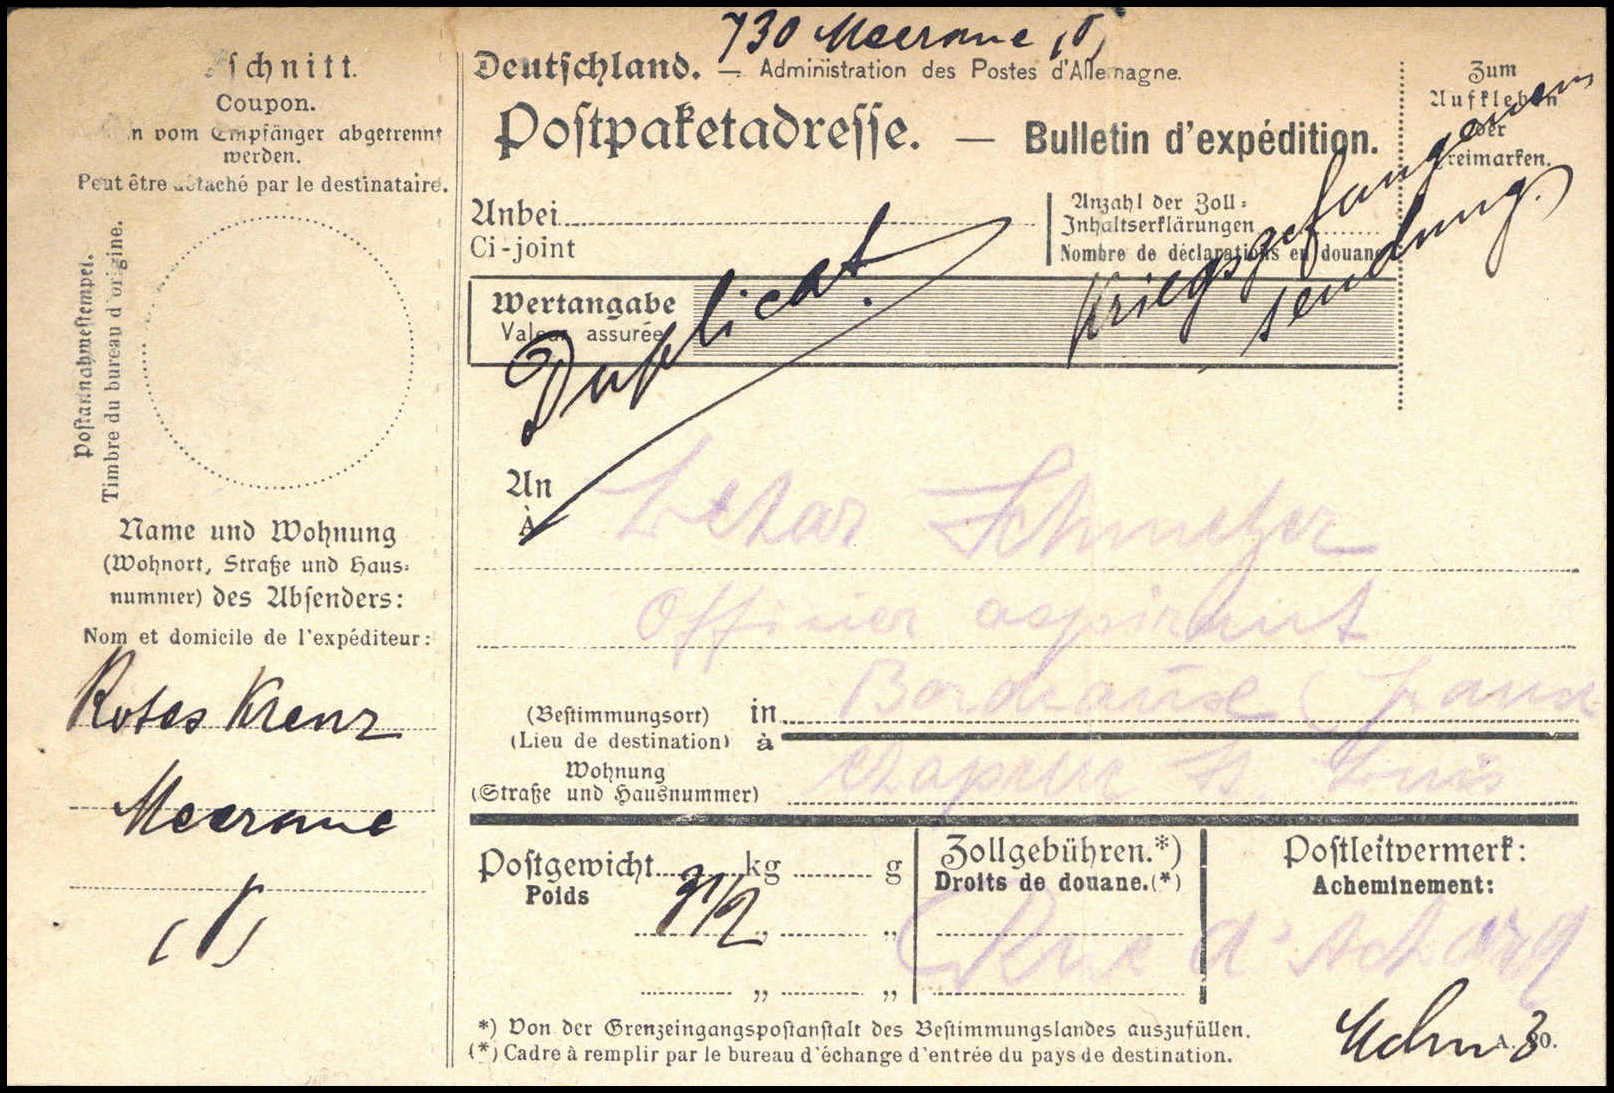 730 Meerane (S)
schnitt.
Coupon.
n vom Empfänger abgetrennt
werden.
Peut être détaché par le destinataire.
Postannahmestempel.
Timbre du bureau d'origine.
Name und Wohnung
(Wohnort, Straße und Haus-
nummer) des Absenders:
Nom et domicile de l'expéditeur:
Rotes Kreuz
Meerane
(S)
Deutschland. — Administration des Postes d'Allemagne.
Postpaketadresse. — Bulletin d'expédition.
Zum
Aufkleben
der
Freimarken.
Anbei
Ci-joint
Anzahl der Zoll-
Inhaltserklärungen
Nombre de déclarations en douane
Kriegsgefangenen
sendung.
Wertangabe
Valeur assurée
Duplicat.
An
À
Schmelzer
Officier aspirant
(Bestimmungsort) in
(Lieu de destination) à
Bordeause (France
Wohnung
(Straße und Hausnummer)
St. Louis
Postgewicht kg g
Poids
3 1/2 „ „
„ „
Zollgebühren.*)
Droits de douane.(*)
Postleitvermerk:
Acheminement:
(Rue d'
*) Von der Grenzeingangspostanstalt des Bestimmungslandes auszufüllen.
(*) Cadre à remplir par le bureau d'échange d'entrée du pays de destination.
A. 30.